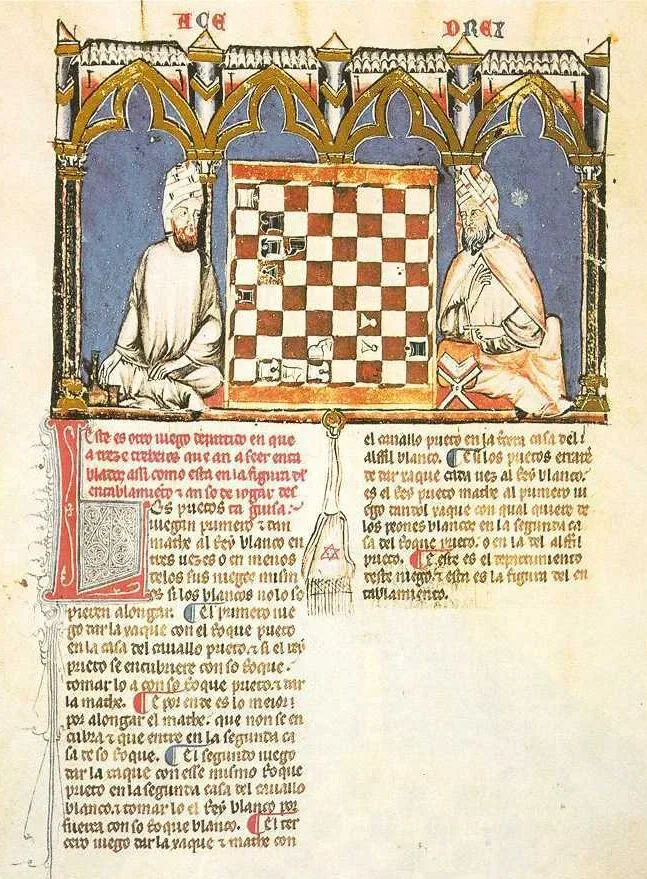 ACE DREX
Este es otro iuego departido en que
a treze trebeios que an a seer enta
blados assi como esta en la figura del
entablamiento & an se de iogar desta guisa.
Los prietos
iuegan primero & dan
mathe al Rey blanco en
tres uezes o en menos
delos sus iuegos mismos
si los blancos nolo so
pieren alongar. El primero iue
go dar la xaque con el Roque prieto
en la casa del cauallo prieto. & si el rey
prieto se encubriere con so Roque.
tomar lo a con so Roque prieto. & dar
la mathe. E por ende es lo meior
por alongar el mathe. que non se en
cubra & que entre en la segunda ca
sa de so Roque. El segundo iuego
dar la xaque con esse mismo Roque
prieto en la segunda casa del cauallo
blanco. & tomar lo el Rey blanco por
fuerça con so Roque blanco. El ter
cero iuego dar la xaque & mathe con
el cauallo prieto en la tercera casa del
alffil blanco. E si los prietos errare
de dar xaque cada uez al Rey blanco.
es el Rey prieto mathe al primero iu
ego dandol xaque con qual quiere de
los peones blancos en la segunda ca
sa del Roque prieto. o en la del alffil
prieto. E este es el departimiento
deste iuego. & esta es la figura del en
tablamiento.